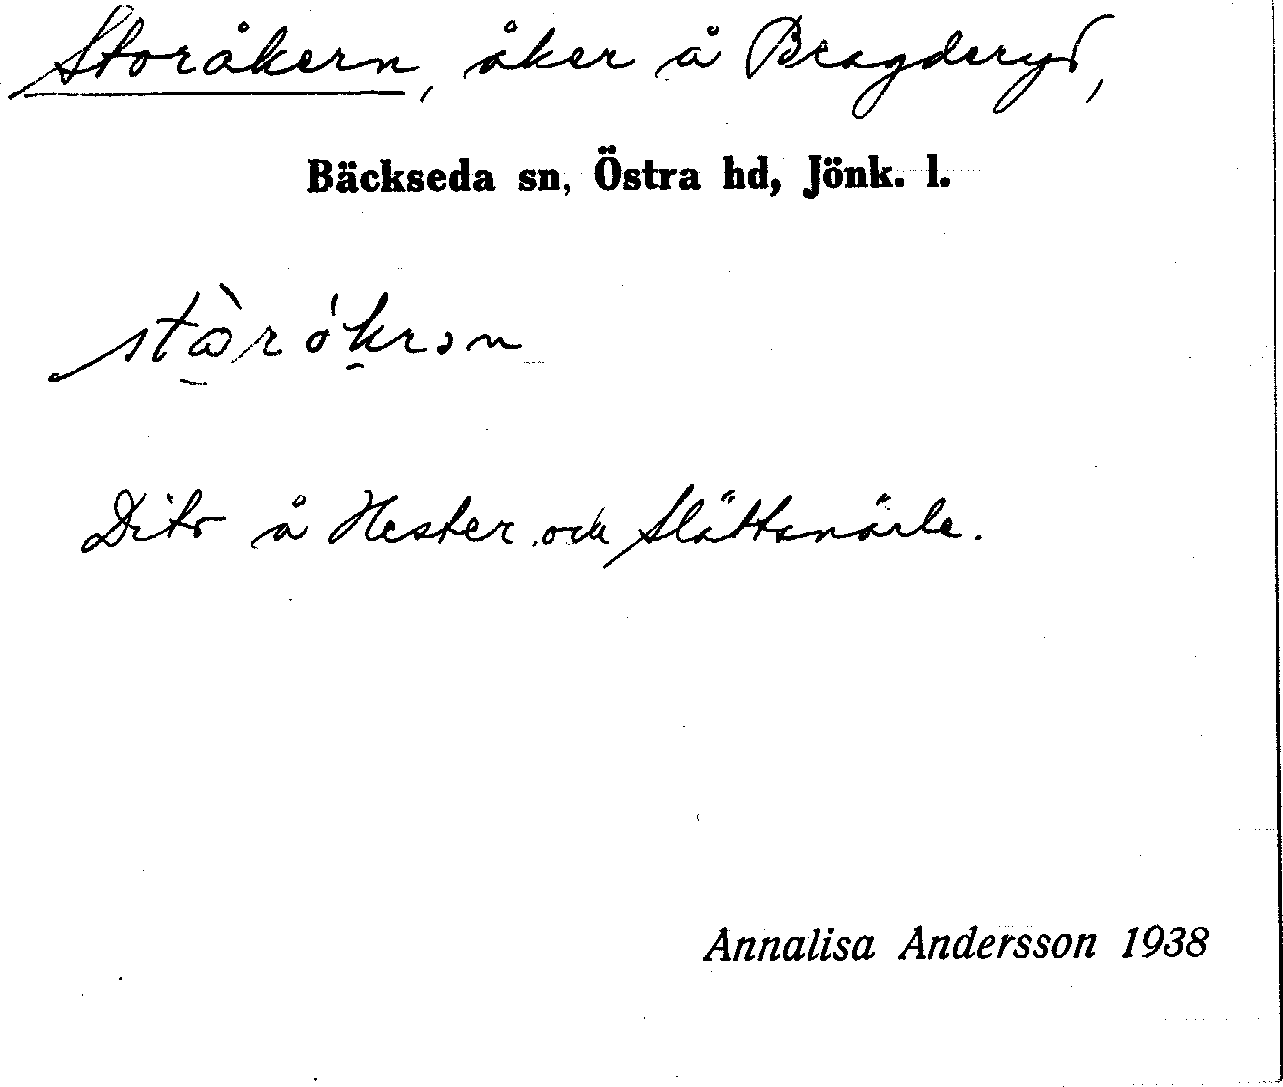 Storåkern, åker å Bragderyd,
Bäckseda sn, Östra hd, Jönk. l.
Dito å Hester och Slättanärle.
Annalisa Andersson 1938